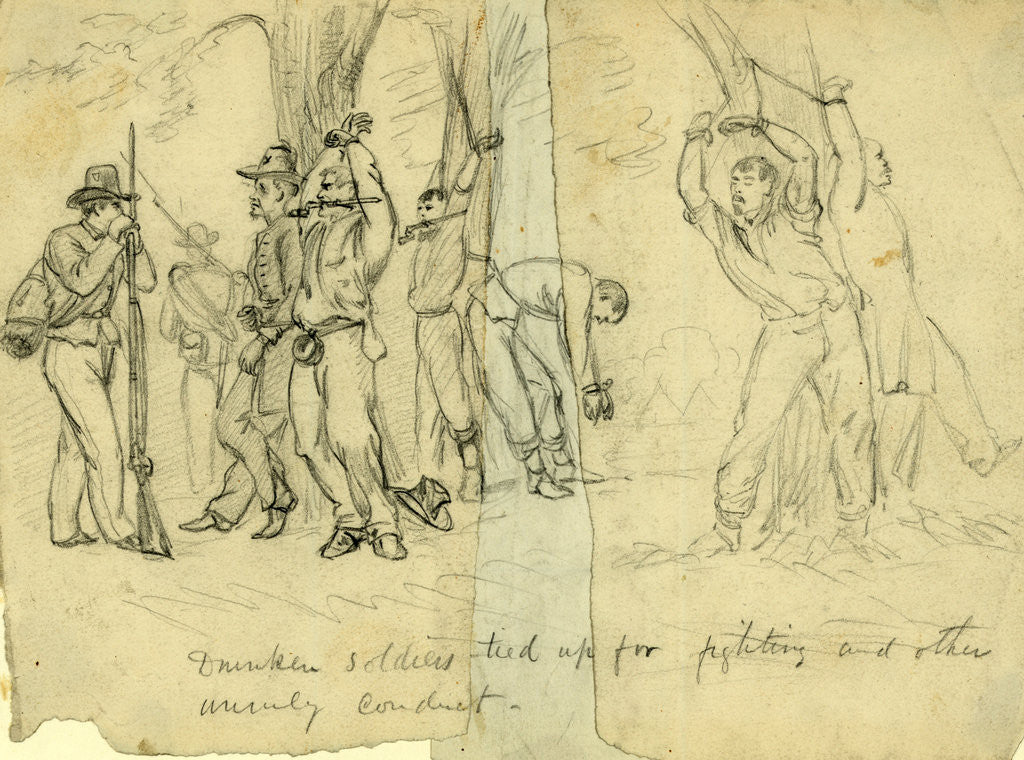 Drunken soldiers tied up for fighting and other
unruly conduct.